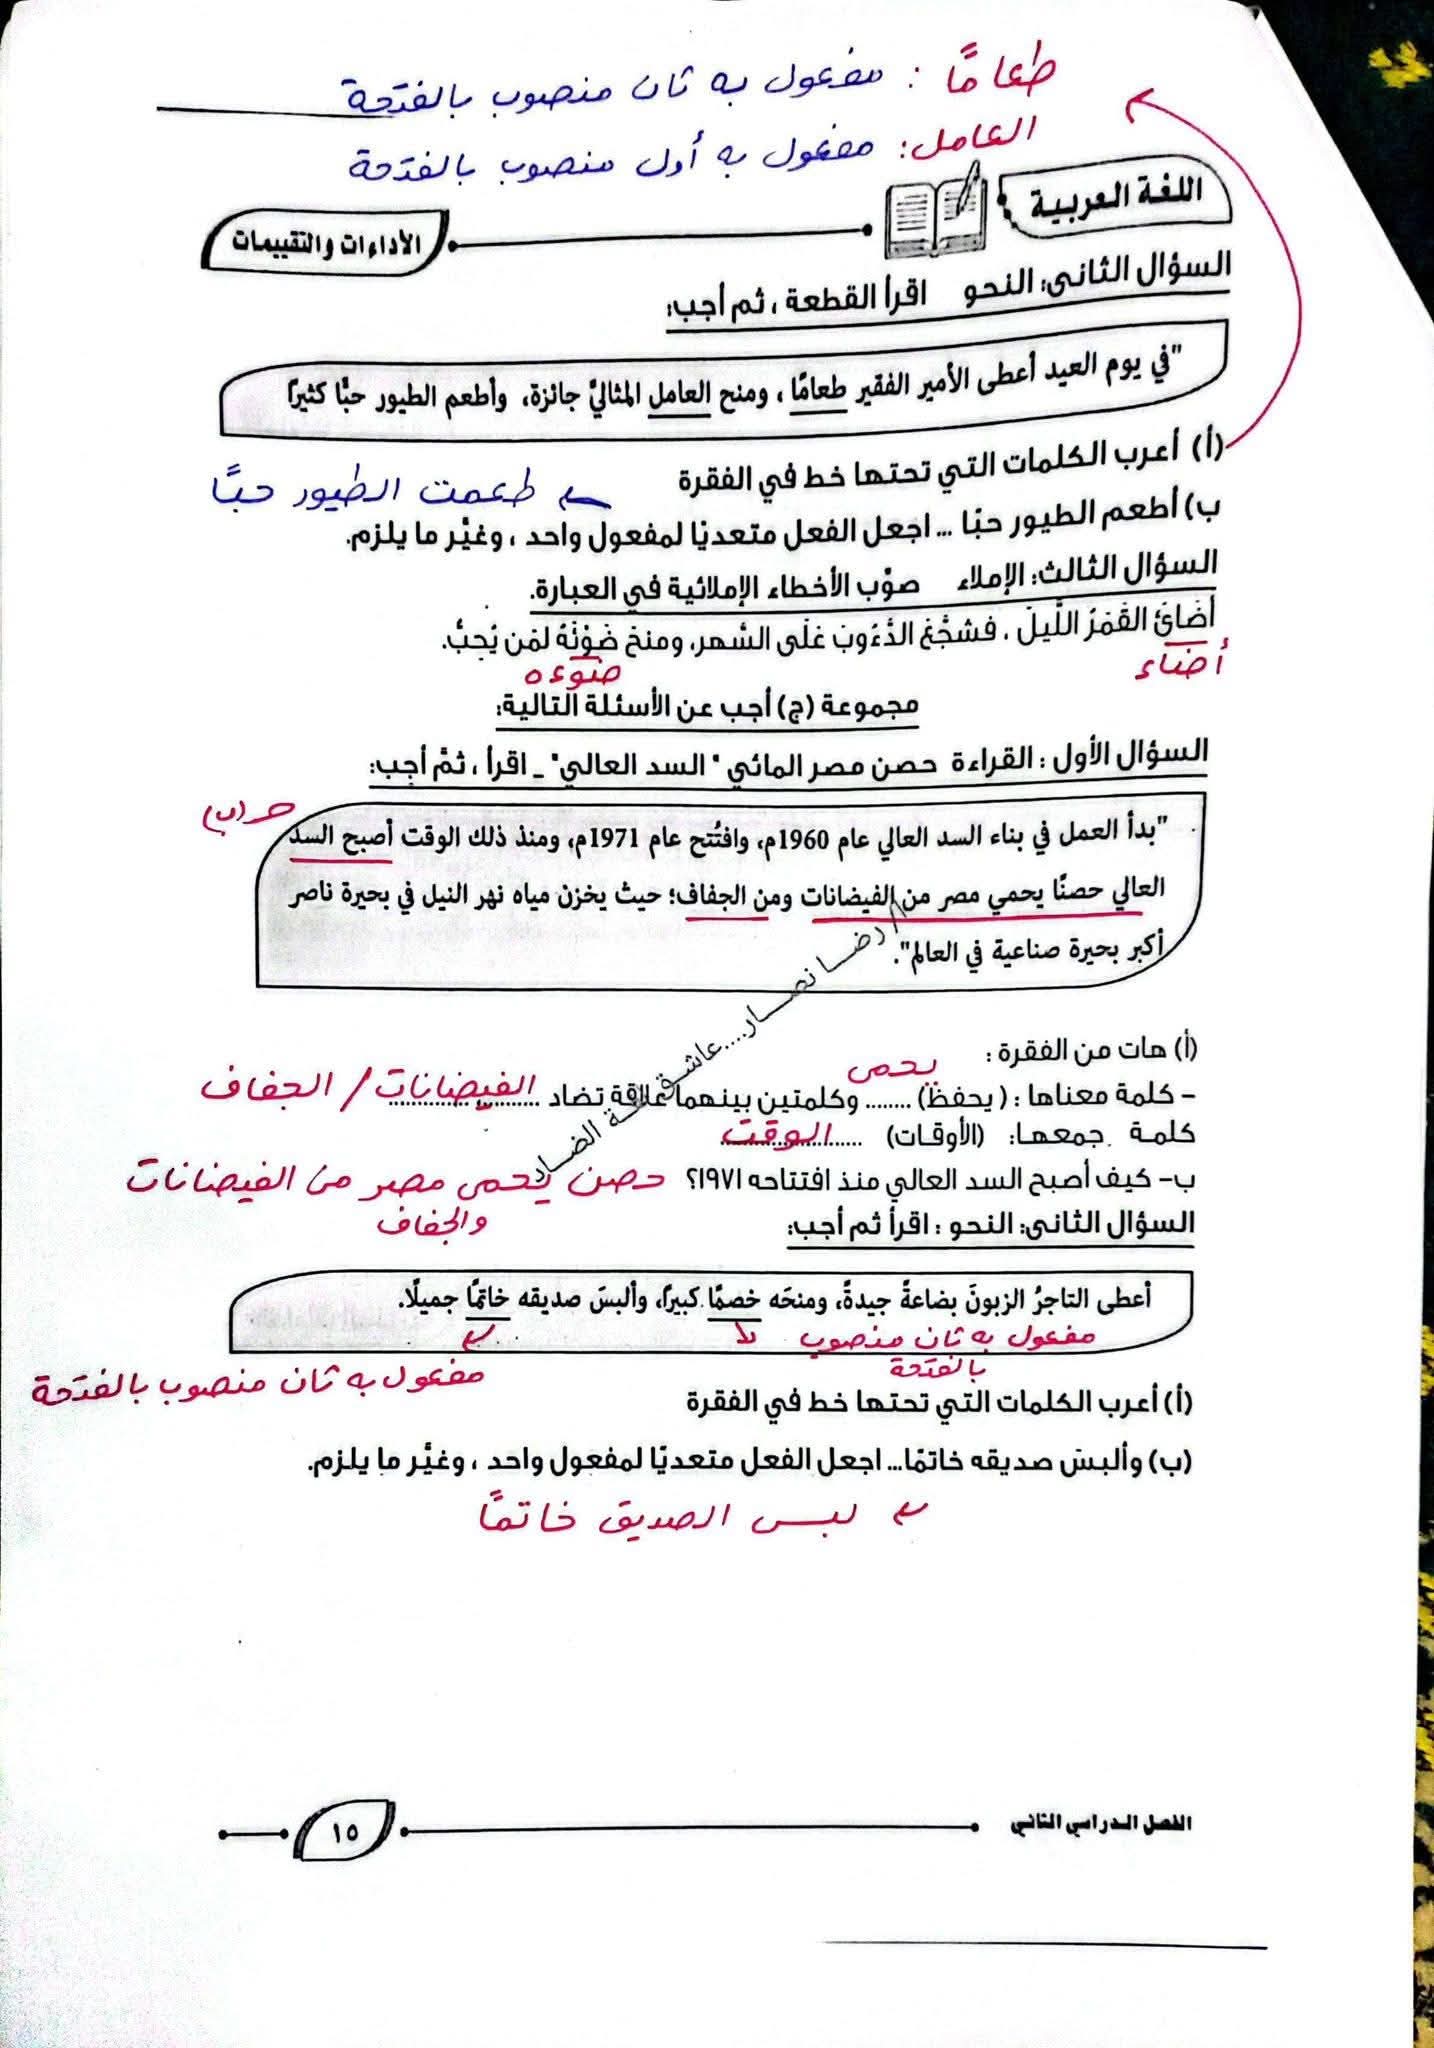 طعامًا : مفعول به ثان منصوب بالفتحة
العامل: مفعول به أول منصوب بالفتحة
اللغة العربية
الأداءات والتقييمات
السؤال الثانى: النحو اقرأ القطعة ، ثم أجب:
"في يوم العيد أعطى الأمير الفقير طعامًا ، ومنح العامل المثاليَّ جائزة، وأطعم الطيور حبًّا كثيرًا
(أ) أعرب الكلمات التي تحتها خط في الفقرة
طعمت الطيور حبًّا
ب) أطعم الطيور حبًا ... اجعل الفعل متعديًا لمفعول واحد ، وغيِّر ما يلزم.
السؤال الثالث: الإملاء صوِّب الأخطاء الإملائية في العبارة.
أَضَائَ القَمَرُ اللَّيلَ ، فشجَّعَ الدَّءُوبَ عَلَى السَّهر، ومنحَ ضَوْئَهُ لمَن يُحِبُّ.
أضاء
ضوءه
مجموعة (ج) أجب عن الأسئلة التالية:
السؤال الأول : القراءة حصن مصر المائي " السد العالي" _ اقرأ ، ثمَّ أجب:
حـ (ب)
"بدأ العمل في بناء السد العالي عام 1960م، وافتُتح عام 1971م، ومنذ ذلك الوقت أصبح السد
العالي حصنًا يحمي مصر من الفيضانات ومن الجفاف؛ حيث يخزن مياه نهر النيل في بحيرة ناصر
أكبر بحيرة صناعية في العالم".
/ رضـا نصـار....عاشـق لغـة الضـاد
(أ) هات من الفقرة :
يحمى
– كلمة معناها : ( يحفظ) ........ وكلمتين بينهما علاقة تضاد ........ الفيضانات / الجفاف
كلمة جمعها: (الأوقات) ........ الوقت
ب– كيف أصبح السد العالي منذ افتتاحه ١٩٧١؟ حصن يحمى مصر من الفيضانات
والجفاف
السؤال الثانى: النحو : اقرأ ثم أجب:
أعطى التاجرُ الزبونَ بضاعةً جيدةً، ومنحَه خصمًا كبيرًا، وألبسَ صديقه خاتمًا جميلًا.
مفعول به ثان منصوب
بالفتحة
مفعول به ثان منصوب بالفتحة
(أ) أعرب الكلمات التي تحتها خط في الفقرة
(ب) وألبسَ صديقه خاتمًا... اجعل الفعل متعديًا لمفعول واحد ، وغيِّر ما يلزم.
لبس الصديق خاتمًا
الفصل الـدراسي الثاني
١٥